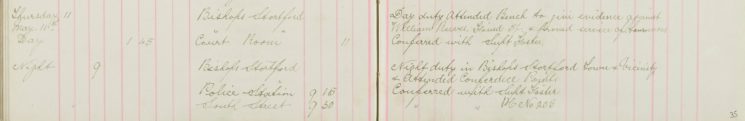 Thursday 11 Bishops Stortford Day duty Attended Bench to give evidence against
May 11th William Reeves, found Dr. & formal service of summons
Day 1 45 Court Room 11 Conferred with Supt Foster
Night 9 Bishops Stortford Night duty in Bishops Stortford Town & Vicinity
& Attended Conference Points
Police Station 9 15 Conferred with Supt Foster
South Street 9 30 " " PC No 205
35